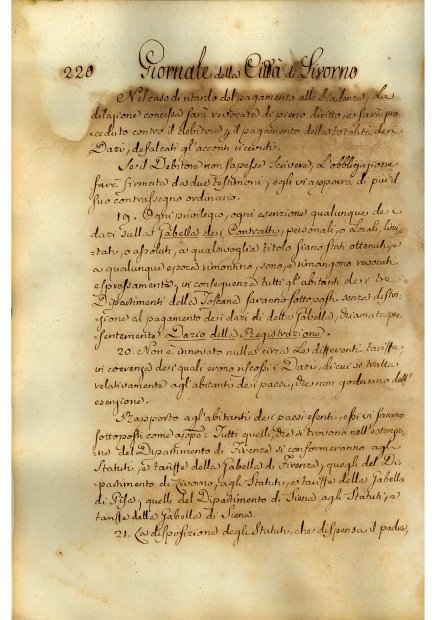 220 Giornale della Città di Livorno
Nel caso di ritardo del pagamento alle Scadenze, La
dilazione concessa sarà revocata di pieno diritto, e sarà pro
ceduto contro il debitore pel pagamento della totalità dei
Dazi, defalcati gl'acconti ricevuti.
Se il Debitore non sapesse Scrivere, L'obbligazione
sarà firmata da due testimoni, egli vi apporrà di più il
suo contrassegno ordinario.
19. Ogni privilegio, ogni esenzione qualunque dei
dazi sulla Gabella dei Contratti, personali, o Locali, limi
tati, o assoluti, a qualsivoglia titolo siano stati ottenuti, e
a qualunque epoca rimontino, sono, e rimangono revocati
espressamente, in conseguenza tutti gl'abitanti dei tre
Dipartimenti della Toscana saranno sottoposti senza distin
zione al pagamento dei dazi di detta Gabella, chiamata pre
sentemente Dazio della Registrazione.
20. Non è innovato nulla circa Le differenti tariffe,
in coerenza dei quali erono riscossi i Dazi, di cui si tratta
relativamente agl'abitanti dei paesi, che non godevano dell'
esenzione.
Rapporto agl'abitanti dei paesi esenti, essi vi saranno
sottoposti come appo: Tutti quelli, che si trovono nell'estenzio
ne del Dipartimento di Firenze si conformeranno agli
Statuti, e tariffe della Gabella di Firenze, quegli del Di
partimento di Livorno agli Statuti, e tariffe della Gabella
di Pisa, quelli del Dipartimento di Siena agli Statuti, e
tariffe della Gabella di Siena.
21. La disposizione degli Statuti, che dispensa il padre,